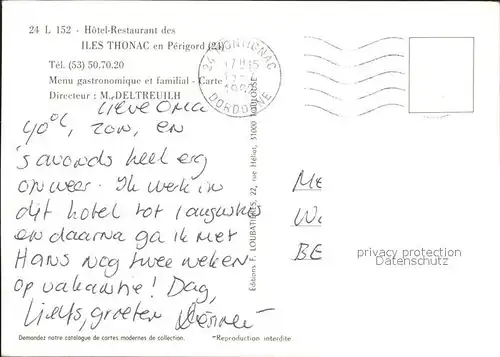 24 L 152 - Hôtel-Restaurant des
ILES THONAC en Périgord (24)
Tél. (53) 50.70.20
Menu gastronomique et familial - Carte
Directeur : M. DELTREUILH
24 MONTIGNAC
DORDOGNE
Lieve Oma
40°C, zon, en
's avonds heel erg
onweer. Ik werk in
dit hotel tot 1 augustus
en daarna ga ik met
Hans nog twee weken
op vakantie! Dag,
Liefs, groeten
Editions F. LOUBATIÈRES, 22, rue Héliot, 31000 TOULOUSE
ME
W
BE
privacy protection
Datenschutz
Demandez notre catalogue de cartes modernes de collection.
Reproduction interdite